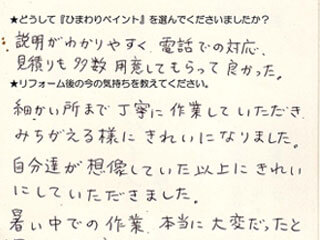 ★どうして『ひまわりペイント』を選んでくださいましたか?
説明がわかりやすく、電話での対応、
見積りも多数用意してもらって良かった。
★リフォーム後の今の気持ちを教えてください。
細かい所まで丁寧に作業していただき
みちがえる様にきれいになりました。
自分達が想像していた以上にきれい
にしていただきました。
暑い中での作業、本当に大変だったと